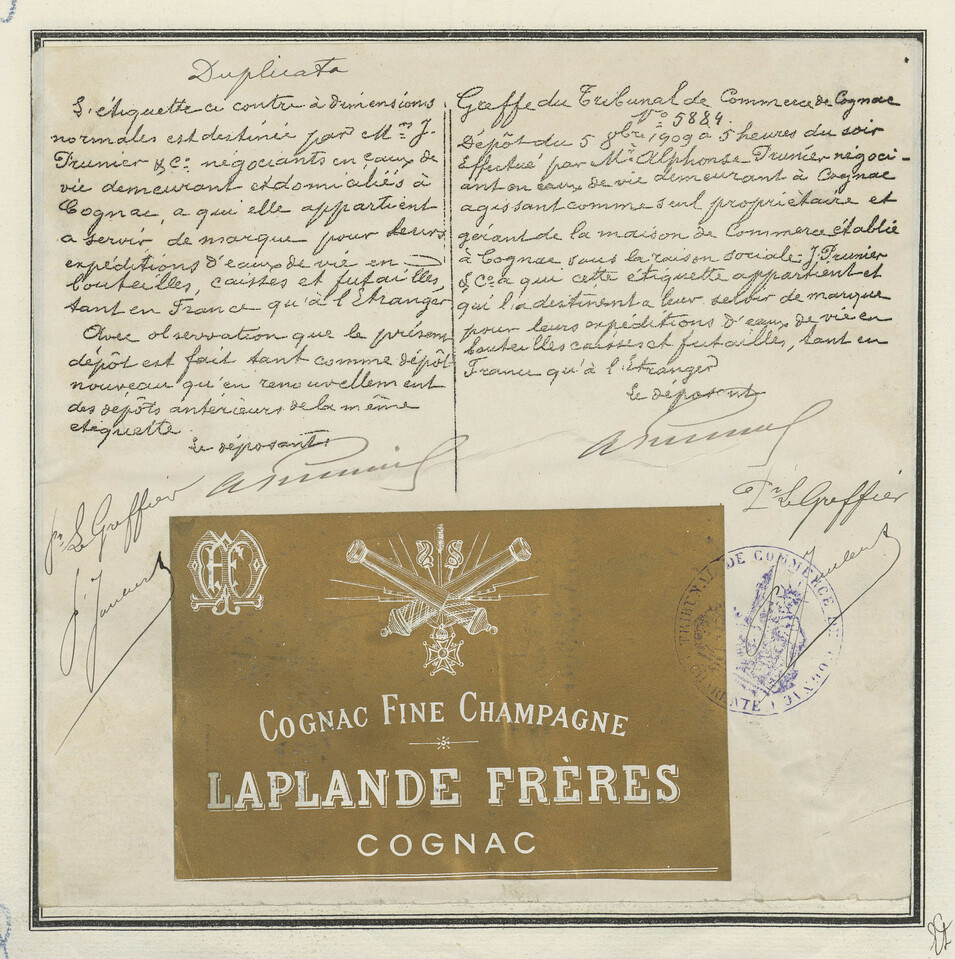 Duplicata
L'étiquette ci contre à dimensions
normales est destinée par Mrs J.
Prunier & Co négociants en eaux de
vie demeurant et domiciliés à
Cognac, a qui elle appartient
a servir de marque pour leurs
expéditions d'eaux de vie en
bouteilles, caisses et futailles,
tant en France qu'à l'Etranger
Avec observation que le présent
dépôt est fait tant comme dépôt
nouveau qu'en renouvellement
des dépôts antérieurs de la même
étiquette.
Le déposant.
APrunier
pr Le Greffier
Greffe du Tribunal de Commerce de Cognac
No 5884.
Dépôt du 5 9bre 1909 à 5 heures du soir
Effectué par Mr Alphonse Prunier négoci-
ant en eaux de vie demeurant à Cognac
agissant comme seul propriétaire et
gérant de la maison de Commerce établie
à Cognac sous la raison sociale J. Prunier
& Co a qui cette étiquette appartient et
qui l'a destinent a leur servir de marque
pour leurs expéditions d'eaux de vie en
bouteilles caisses et futailles, tant en
France qu'à l'Etranger
Le déposant
APrunier
Pr Le Greffier
TRIBUNAL DE COMMERCE DE COGNAC
CHARENTE
COGNAC FINE CHAMPAGNE
LAPLANDE FRÈRES
COGNAC